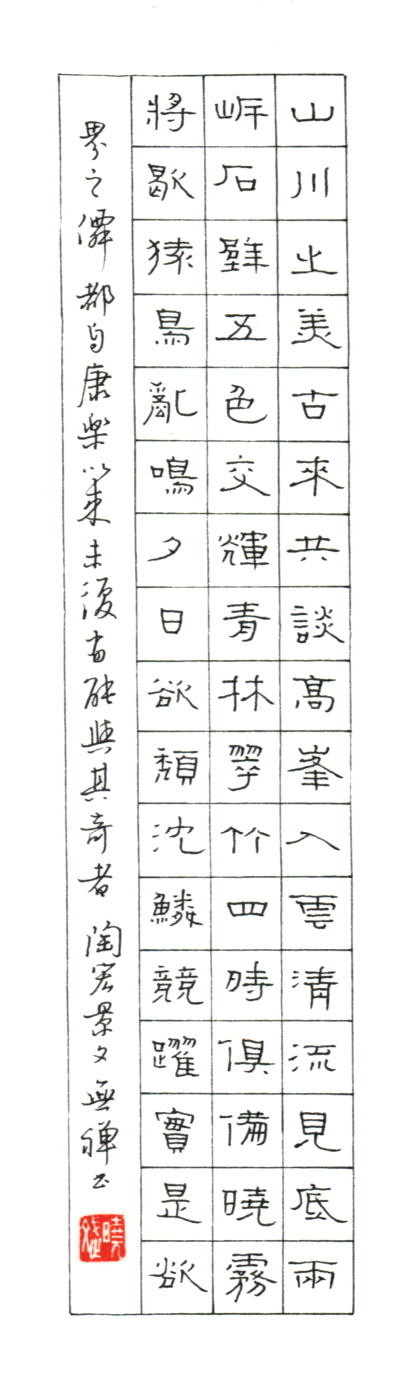 山川之美古來共談高峯入雲清流見底兩
岸石壁五色交輝青林翠竹四時俱備曉霧
將歇猿鳥亂鳴夕日欲頹沈鱗競躍實是欲
界之僊都自康樂以來未復有能與其奇者 陶宏景文 無禪书